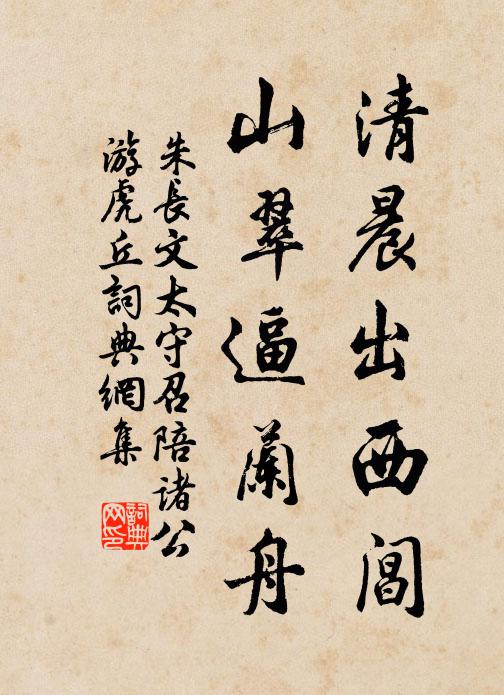 清晨出西閶
山翠逼蘭舟
朱長文太守召陪諸公
游虎丘詞典網集
詞典网印